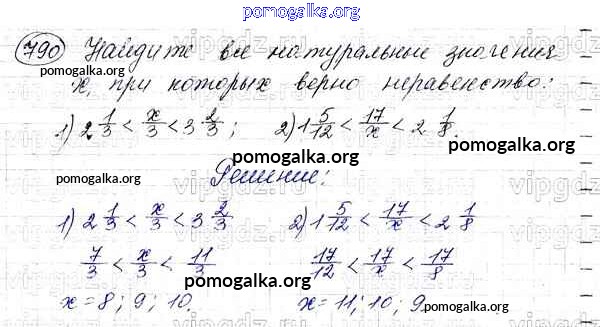 pomogalka.org
790 Найдите все натуральные значения
x, при которых верно неравенство:
1) 2 1/3 < x/3 < 3 2/3; 2) 1 5/12 < 17/x < 2 1/8.
pomogalka.org
Решение:
1) 2 1/3 < x/3 < 3 2/3 2) 1 5/12 < 17/x < 2 1/8
7/3 < x/3 < 11/3 17/12 < 17/x < 17/8
pomogalka.org
x = 8; 9; 10. x = 11; 10; 9
pomogalka.org